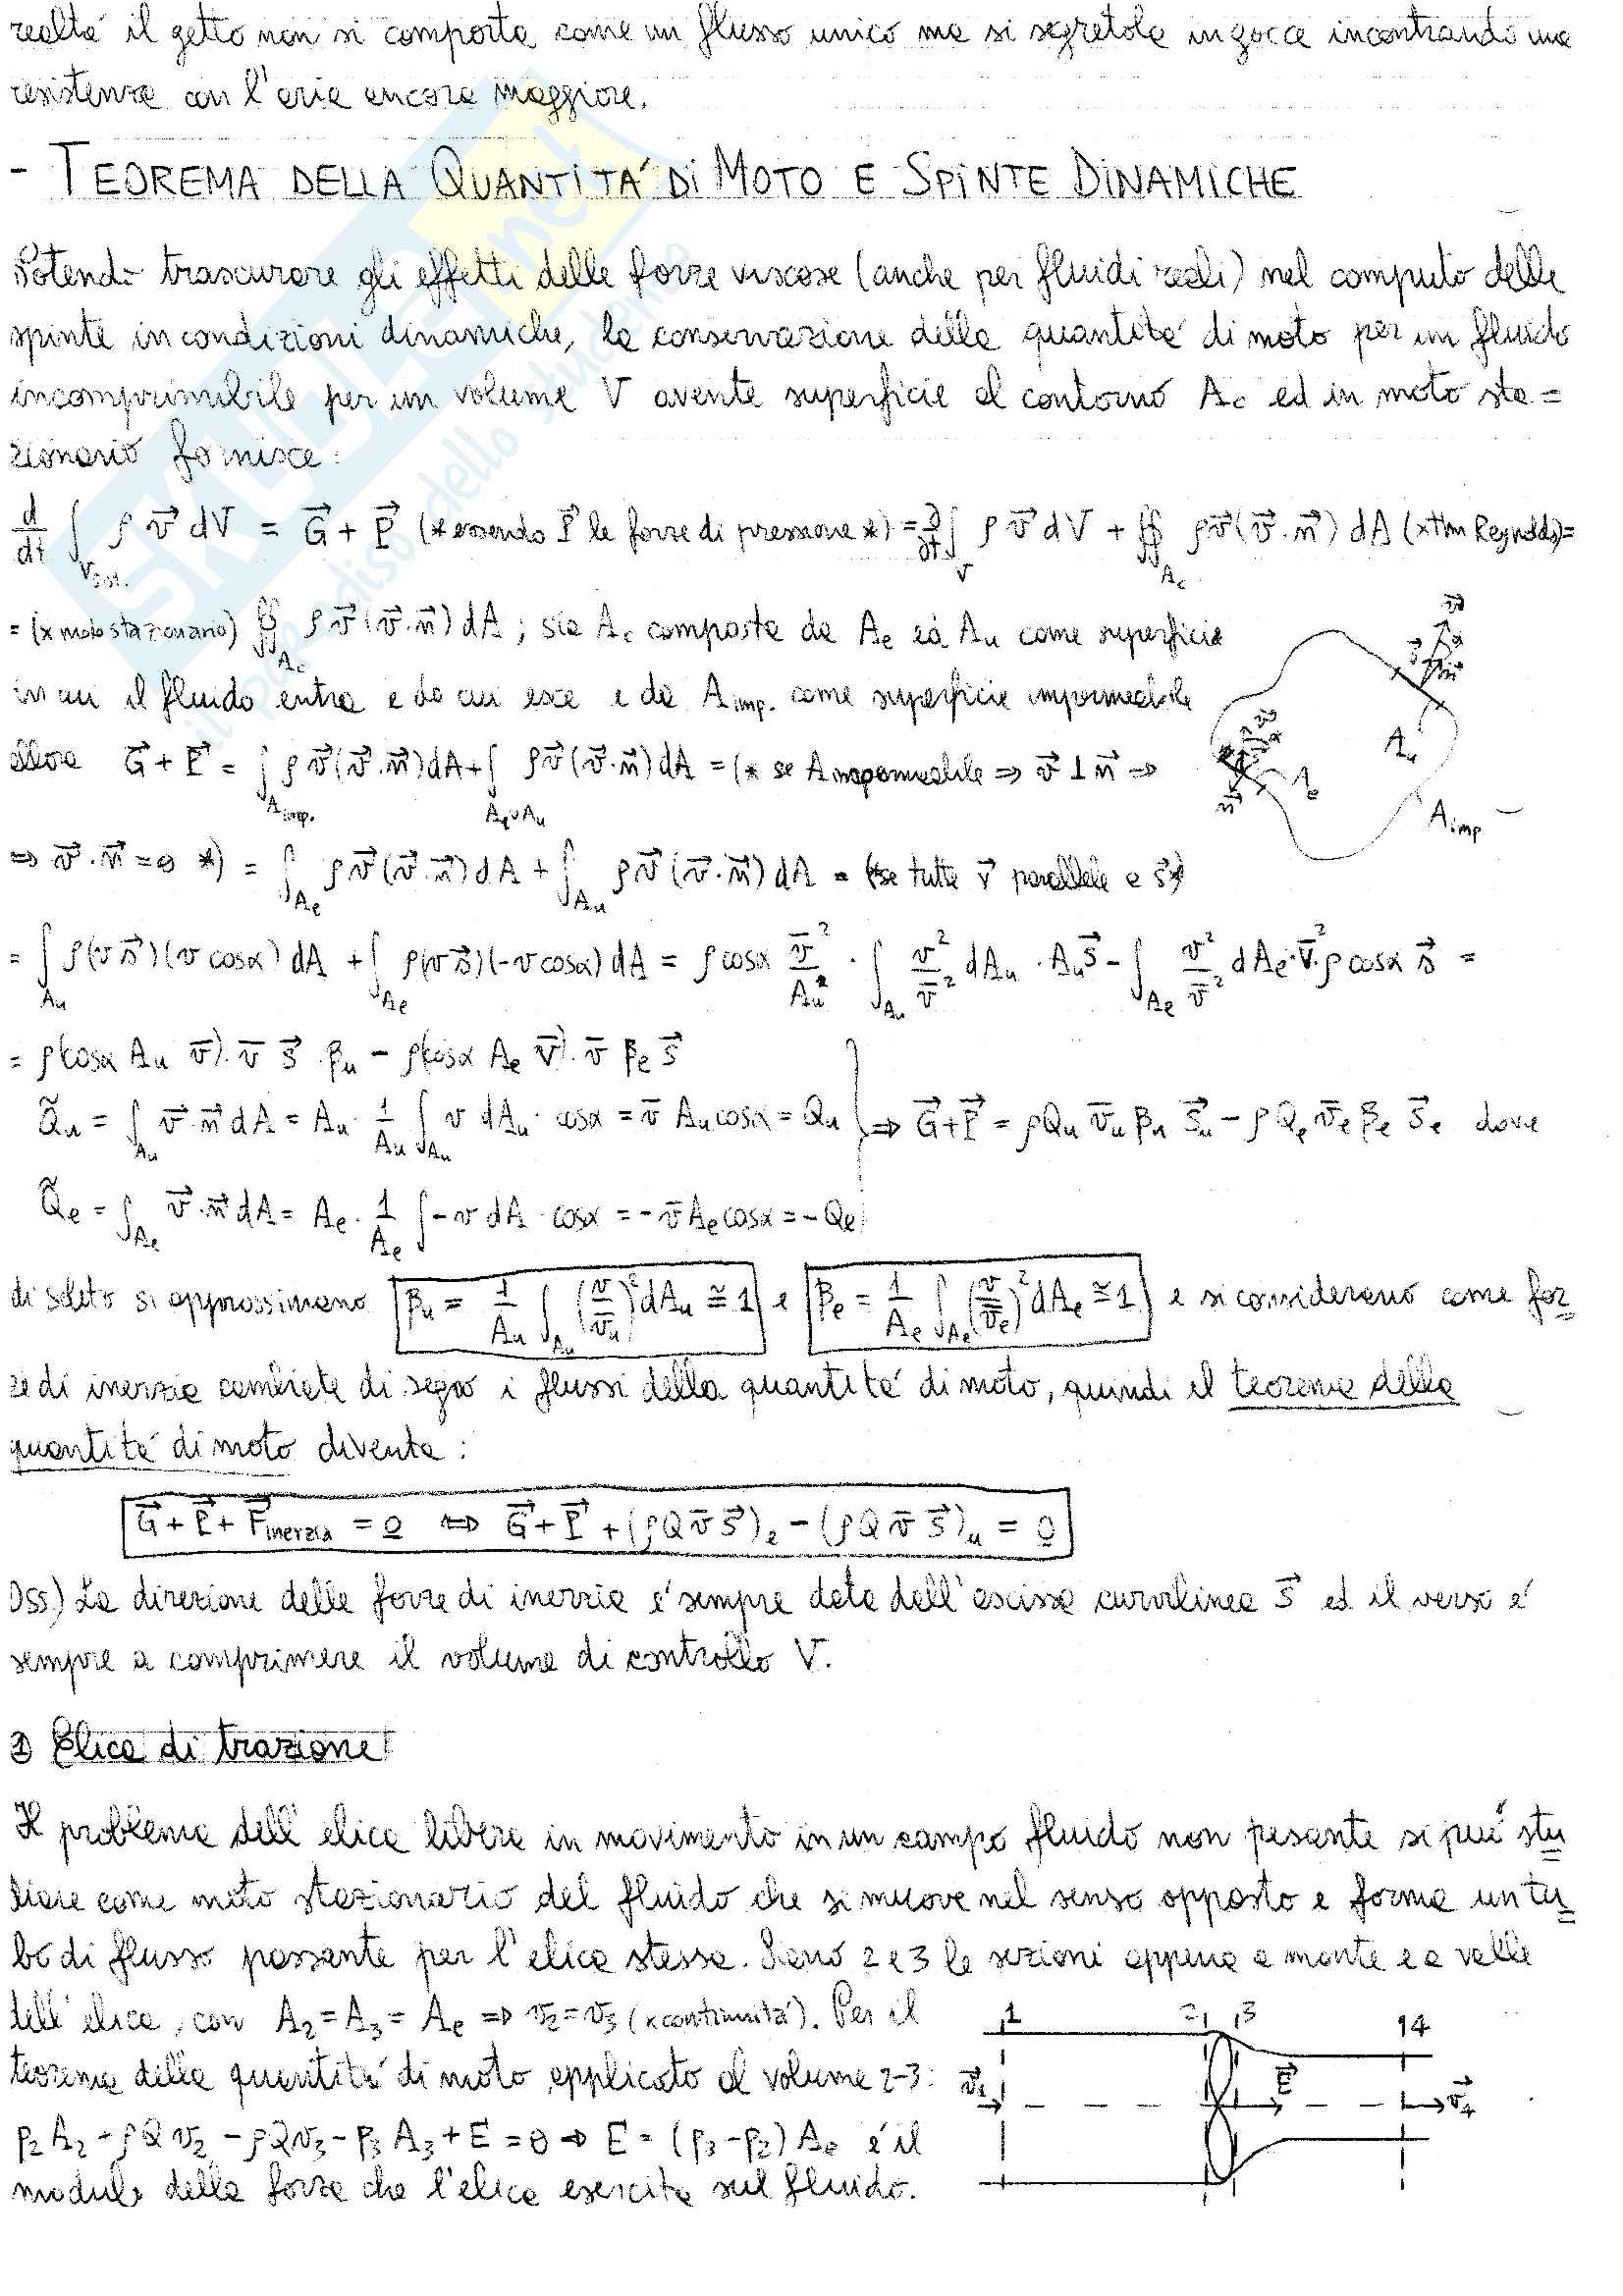 realtà il getto non si comporta come un flusso unico ma si sgretola in gocce incontrando una
resistenza con l'aria ancora maggiore.
- TEOREMA DELLA QUANTITA' DI MOTO E SPINTE DINAMICHE
Potendo trascurare gli effetti delle forze viscose (anche per fluidi reali) nel computo delle
spinte in condizioni dinamiche, la conservazione della quantità di moto per un fluido
incomprimibile per un volume V avente superficie al contorno Ac ed in moto sta=
zionario fornisce:
d/dt ∫_Vsist. ρ v⃗ dV = G⃗ + P⃗ (* essendo P⃗ le forze di pressione *) = ∂/∂t ∫_V ρ v⃗ dV + ∯_Ac ρv⃗(v⃗·n⃗) dA (x thm Reynolds) =
= (x moto stazionario) ∯_Ac ρv⃗(v⃗·n⃗) dA ; sia Ac composta da Ae ed Au come superficie
in cui il fluido entra e da cui esce e da Aimp. come superficie impermeabile
allora G⃗ + P⃗ = ∫_Aimp. ρv⃗(v⃗·n⃗)dA + ∫_Ae∪Au ρv⃗(v⃗·n⃗)dA = (* se A impermeabile ⇒ v⃗ ⊥ n⃗ ⇒
⇒ v⃗·n⃗ = 0 *) = ∫_Ae ρv⃗(v⃗·n⃗)dA + ∫_Au ρv⃗(v⃗·n⃗)dA = (*se tutte v⃗ parallele a s⃗*)
= ∫_Au ρ(v s⃗)(v cosα) dA + ∫_Ae ρ(v s⃗)(-v cosα) dA = ρ cosα v̄²/Au · ∫_Au v²/v̄² dAu · Au s⃗ - ∫_Ae v²/v̄² dAe · v̄² ρ cosα s⃗ =
= ρ(cosα Au v̄)· v̄ s⃗ · βu - ρ(cosα Ae v̄)· v̄ βe s⃗
Q̃u = ∫_Au v⃗·n⃗ dA = Au · 1/Au ∫_Au v dAu · cosα = v̄ Au cosα = Qu } ⇒ G⃗+P⃗ = ρQu v̄u βu s⃗u - ρQe v̄e βe s⃗e dove
Q̃e = ∫_Ae v⃗·n⃗ dA = Ae · 1/Ae ∫ -v dA · cosα = -v̄ Ae cosα = -Qe
di solito si approssimano βu = 1/Au ∫_Au (v/v̄u)² dAu ≅ 1 e βe = 1/Ae ∫_Ae (v/v̄e)² dAe ≅ 1 e si considerano come for
ze di inerzia cambiate di segno i flussi della quantità di moto, quindi il teorema della
quantità di moto diventa:
G⃗ + P⃗ + F⃗inerzia = 0 ⇔ G⃗ + P⃗ + (ρQ v̄ s⃗)e - (ρQ v̄ s⃗)u = 0
Oss.) La direzione delle forze di inerzia è sempre data dall'ascissa curvilinea s⃗ ed il verso è
sempre a comprimere il volume di controllo V.
1) Elica di trazione
Il problema dell'elica libera in movimento in un campo fluido non pesante si può stu
diare come moto stazionario del fluido che si muove nel senso opposto e forma un tu
bo di flusso passante per l'elica stessa. Siano 2 e 3 le sezioni appena a monte e a valle
dell'elica, con A2 = A3 = Ae ⇒ v2 = v3 (x continuità). Per il
teorema della quantità di moto applicato al volume 2-3:
p2 A2 + ρQ v2 - ρQ v3 - p3 A3 + E = 0 ⇒ E = (p3 - p2) Ae è il
modulo della forza che l'elica esercita sul fluido.
Au
Ae
Aimp
n⃗
1 2 3 4
v⃗1 E⃗ v⃗4